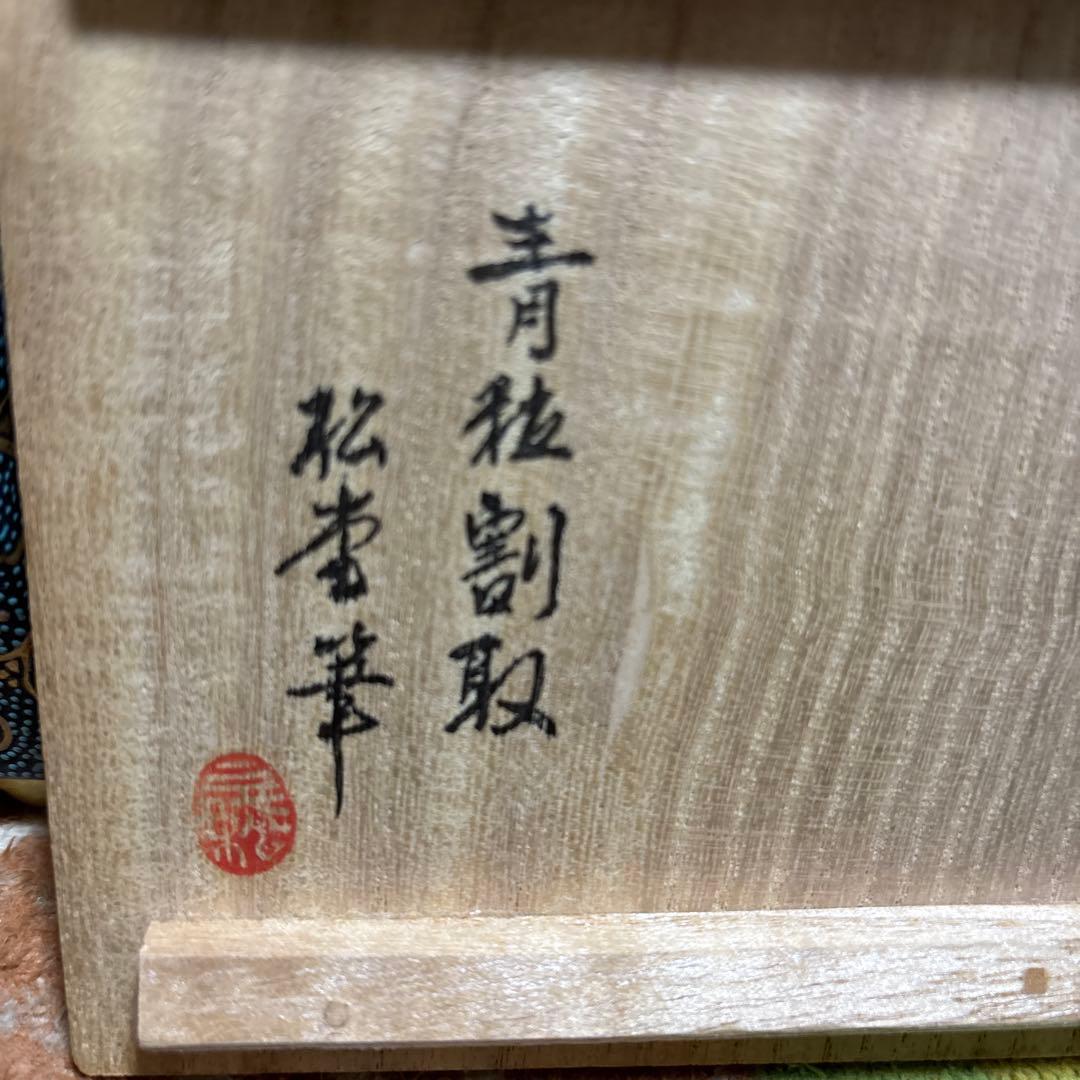 青粒割取
松堂筆